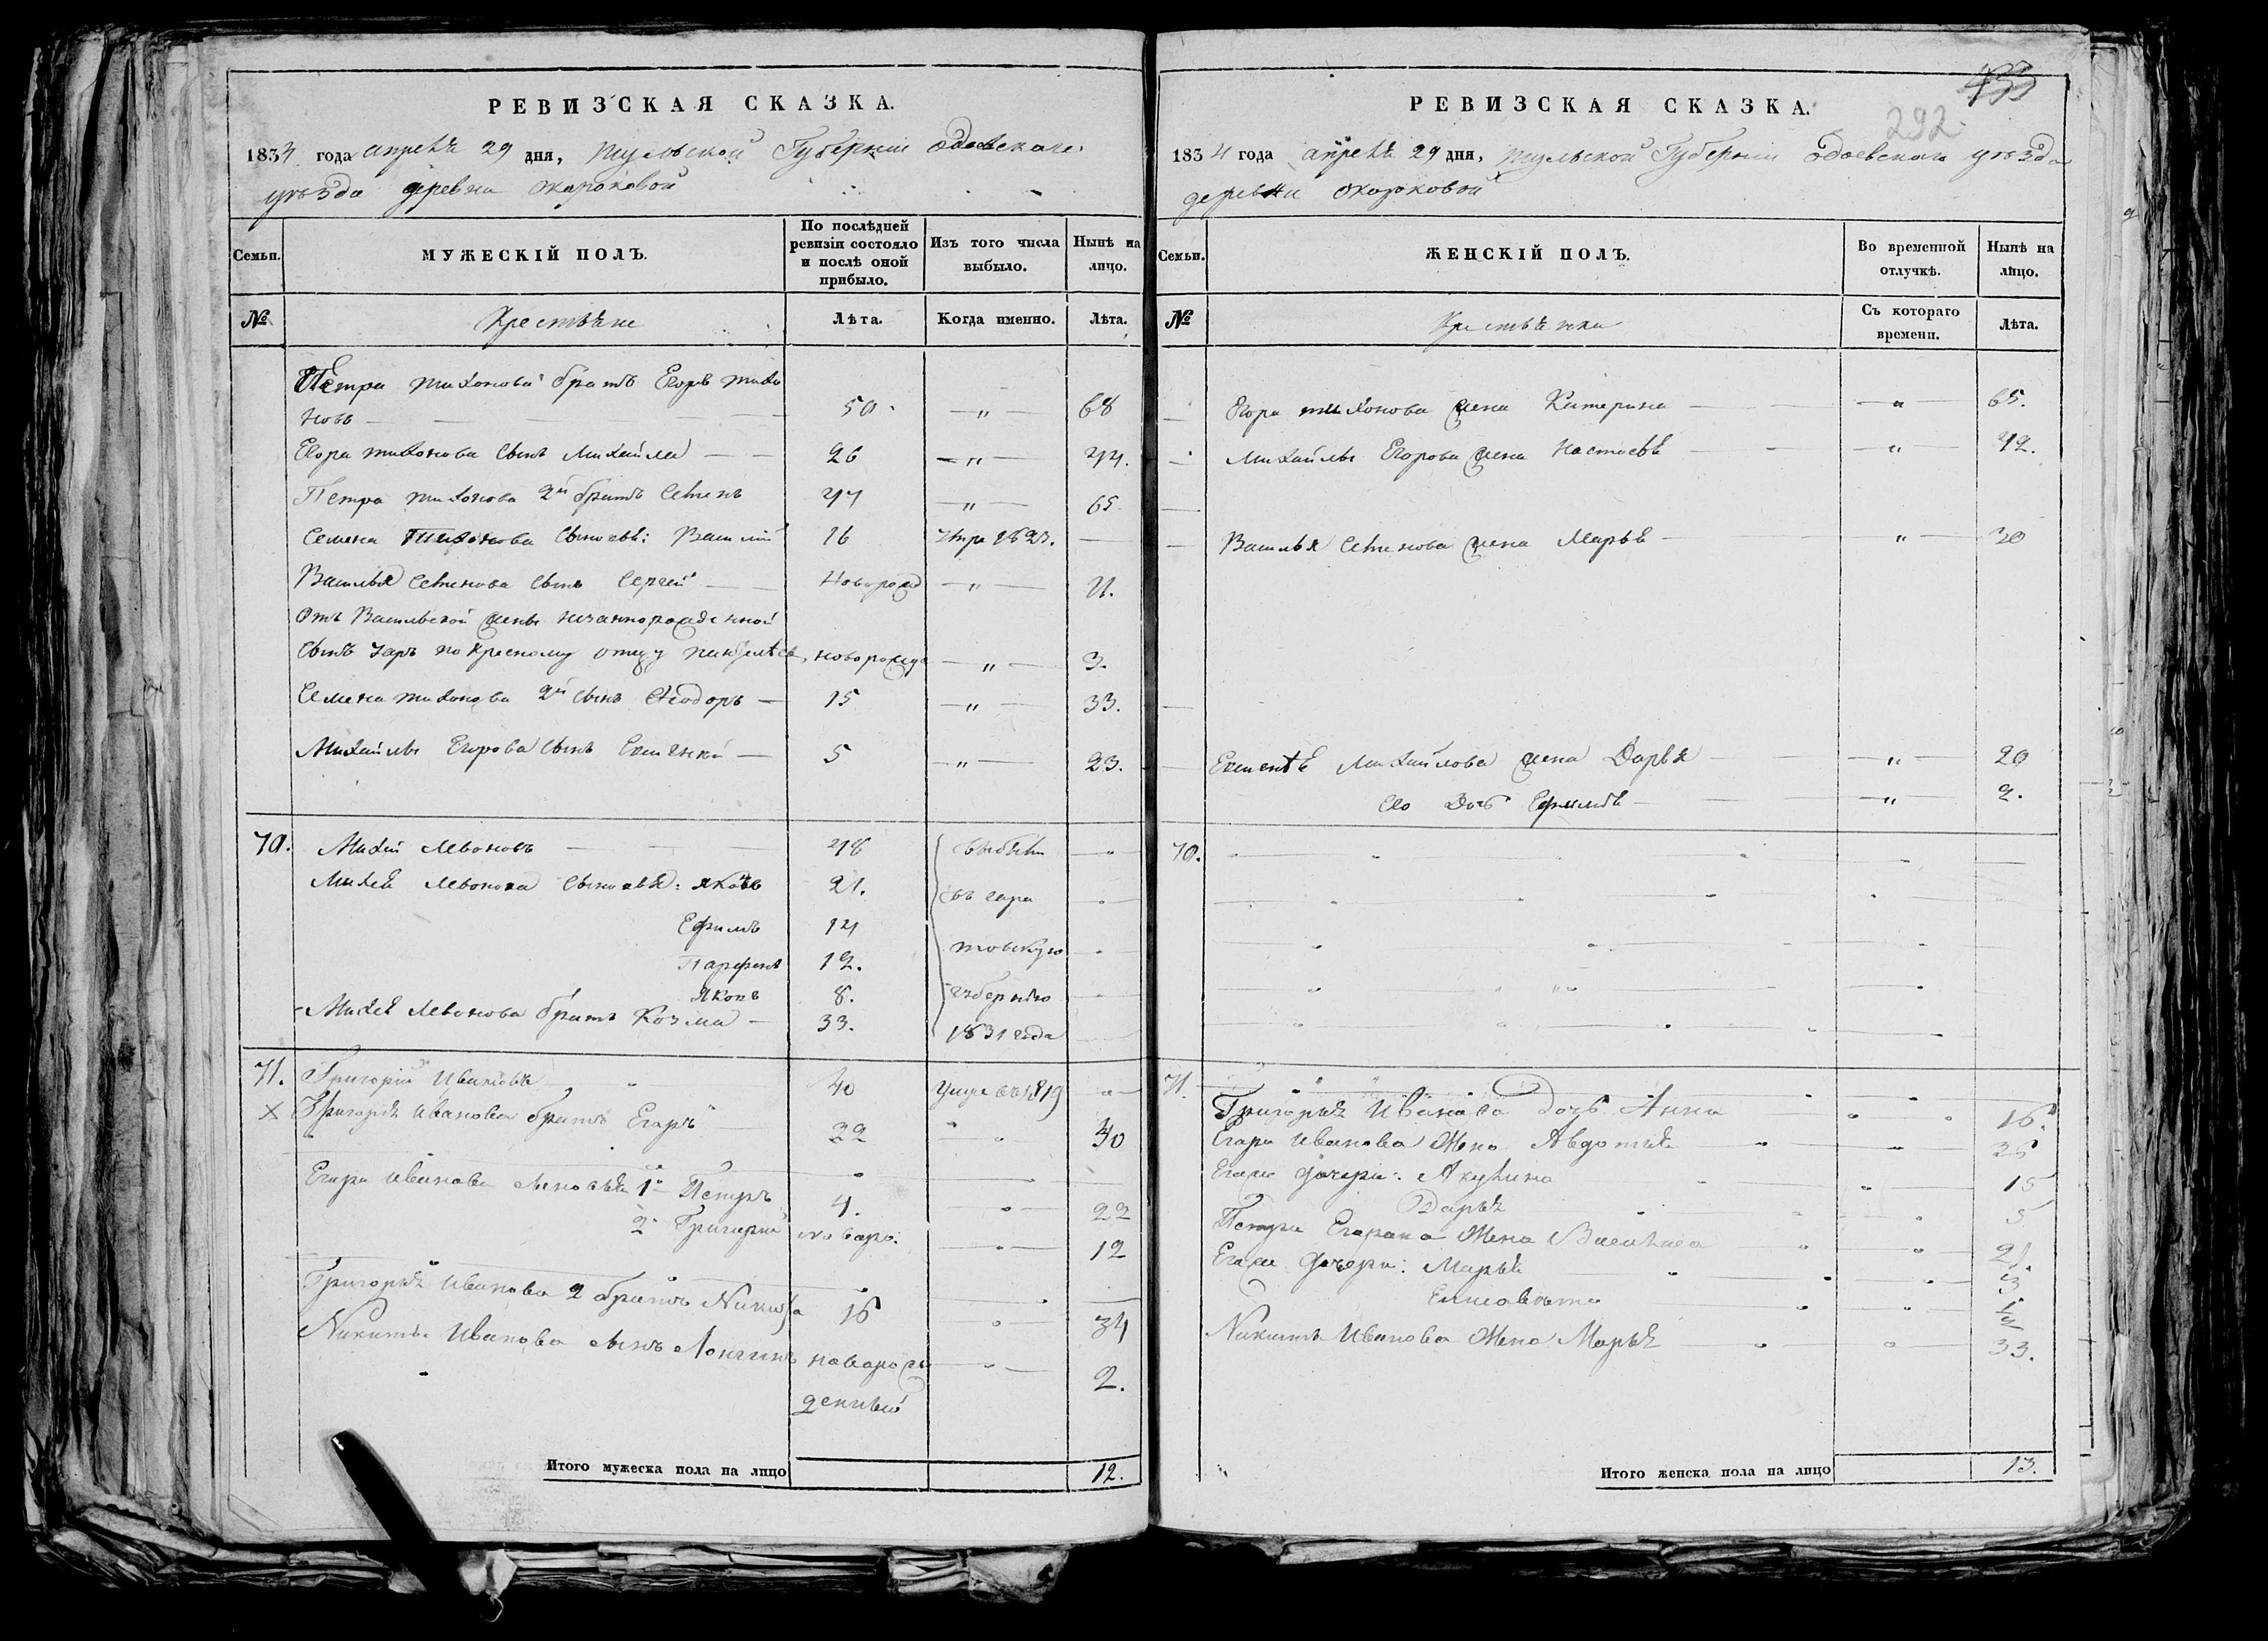 РЕВИЗСКАЯ СКАЗКА.
1834 года апреля 29 дня, Тульской Губернии Одоевскаго
уѣзда деревни
Семьи. МУЖЕСКІЙ ПОЛЪ. По послѣдней ревизіи состояло и послѣ оной прибыло. Изъ того числа выбыло. Нынѣ на лицо.
№ Крестьяне Лѣта. Когда именно. Лѣта.
Петра Тихонова братъ Егоръ Тихо
новъ 50 „ 68
Егора Тихонова сынъ Михайла 26 „ 44.
Петра Тихонова 2й братъ Семенъ 47 „ 65
Семена Тихонова сыновья: Василий 16 1823.
Василья Семенова сынъ Сергей новорожд „ 11.
Отъ Васильевой жены
сынъ по отцу новорожде „ 3.
Семена Тихонова 2й сынъ Ѳеодоръ 15 „ 33.
Михайлы Егорова сынъ 5 „ 23.
70. Михей Левоновъ 48 выбыли
Михея Левонова сыновья: Яковъ 21. въ сара
Ефимъ 14 товскую
Парфенъ 12. губернию
Яковъ 8.
Михея Левонова братъ Козма 33. 1831 года
71. Григорій Ивановъ 40 умре въ 1819
х Григорья Иванова братъ Егаръ 22 40
Егара Иванова сыновья 1й Петръ 4. 22
2й Григорій новаро. 12
Григорья Иванова 2 братъ Никита 16 34
Никиты Иванова сынъ Лонгинъ наварож 2.
денный
Итого мужеска пола на лицо 12.
433
292.
РЕВИЗСКАЯ СКАЗКА.
1834 года апреля 29 дня, Тульской Губернии Одоевскаго уѣзда
деревни
Семьи. ЖЕНСКІЙ ПОЛЪ. Во временной отлучкѣ. Нынѣ на лицо.
№ Крестьянки Съ котораго времени. Лѣта.
Егора Тихонова жена Катерина „ 65.
Михайлы Егорова жена Настасья „ 42.
Василья Семенова жена Марья „ 30
Михайлова жена Дарья „ 20
Его дочь „ 2.
70.
71.
Григорья Иванова дочь Анна 16.
Егара Иванова жена Авдотья
Егара дочери: Акулина 15
Дарья 5
Петра Егарова жена Василиса 21.
Егара дочери: Марья 3.
Елисавета
Никиты Иванова жена Марья 33.
Итого женска пола на лицо 13.